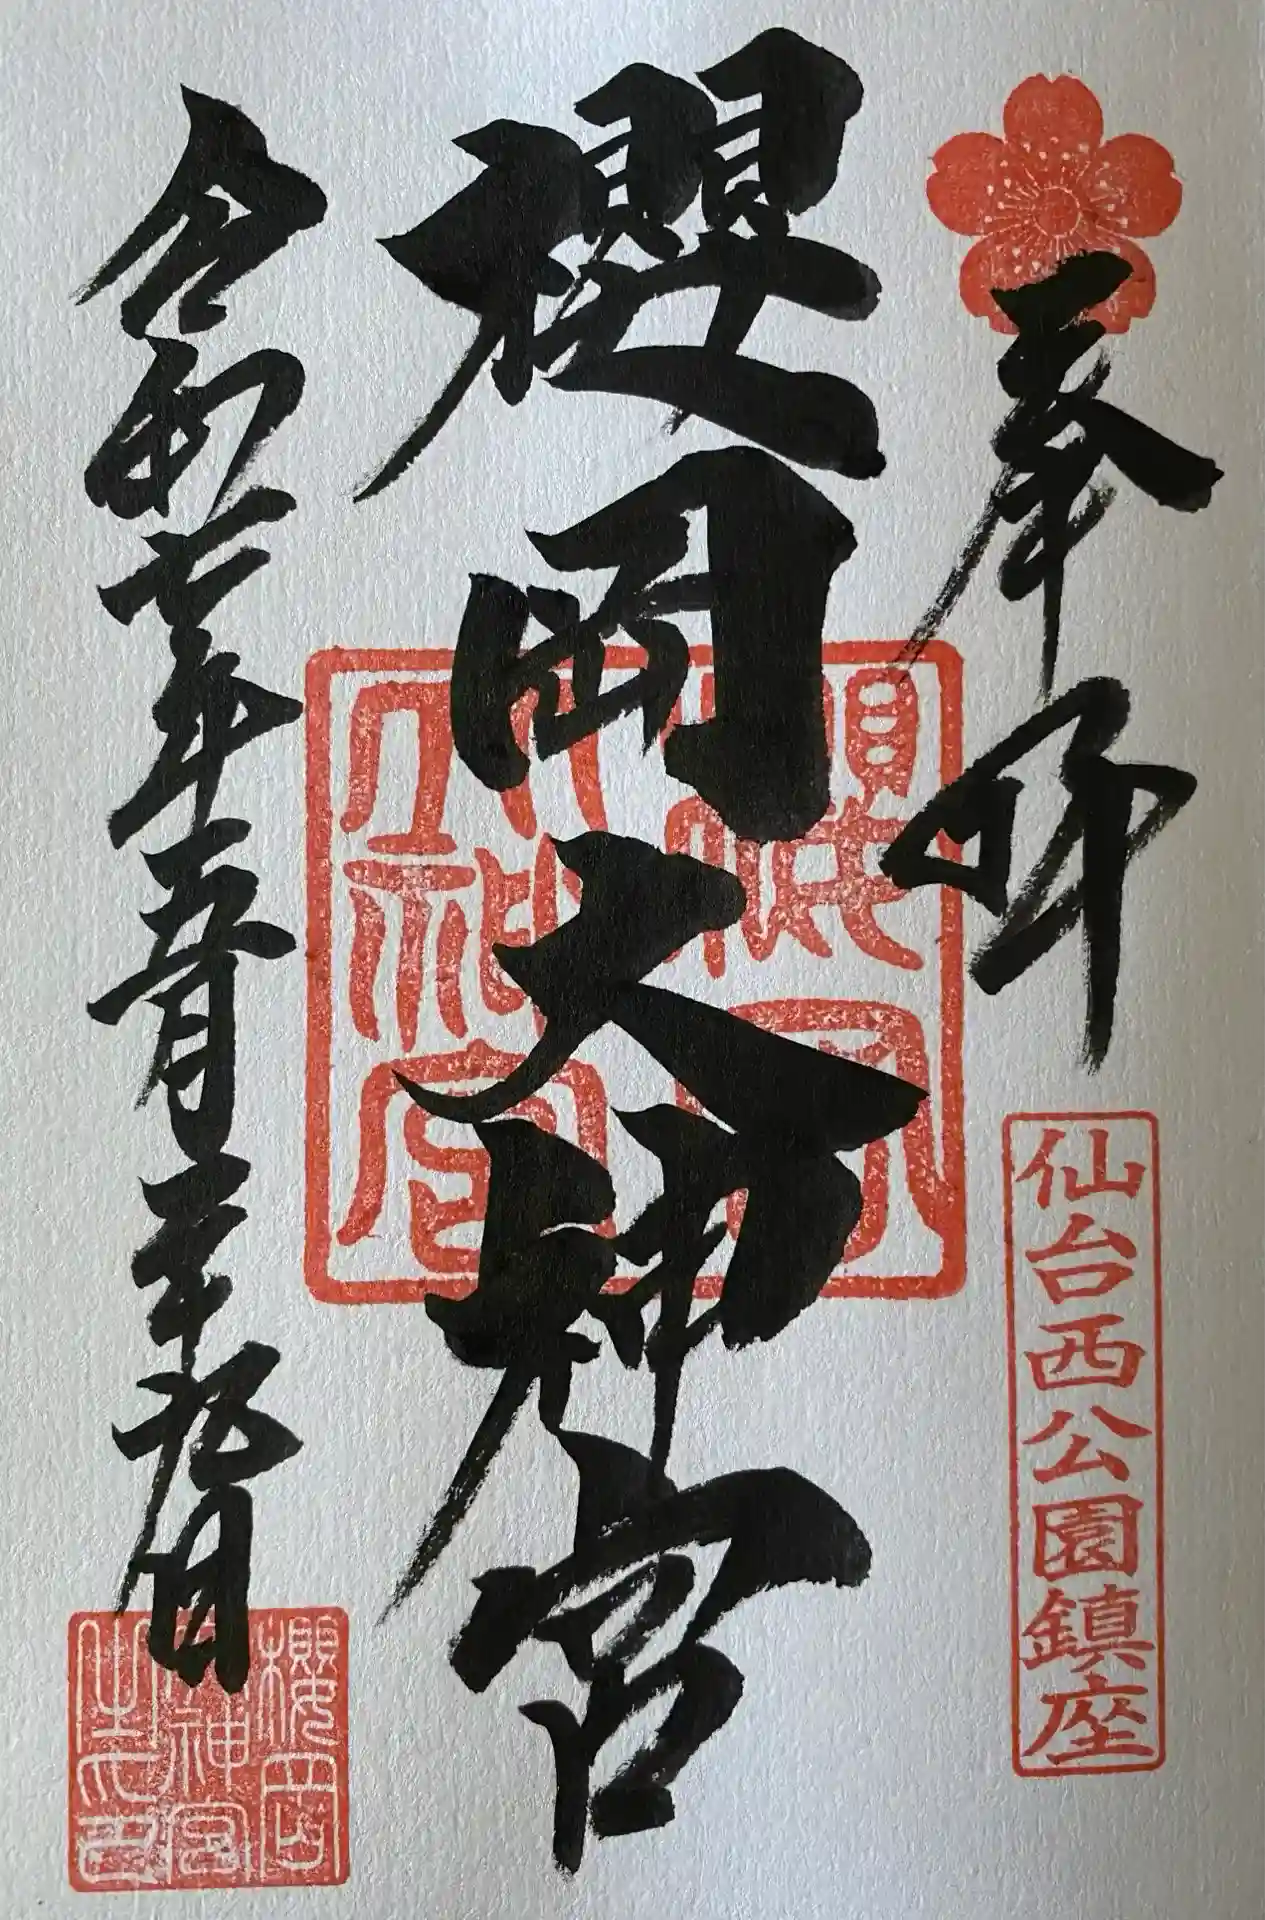 奉拝
仙台西公園鎮座
櫻岡大神宮
櫻岡
大神宮
令和七年五月二十九日
櫻岡
大神宮